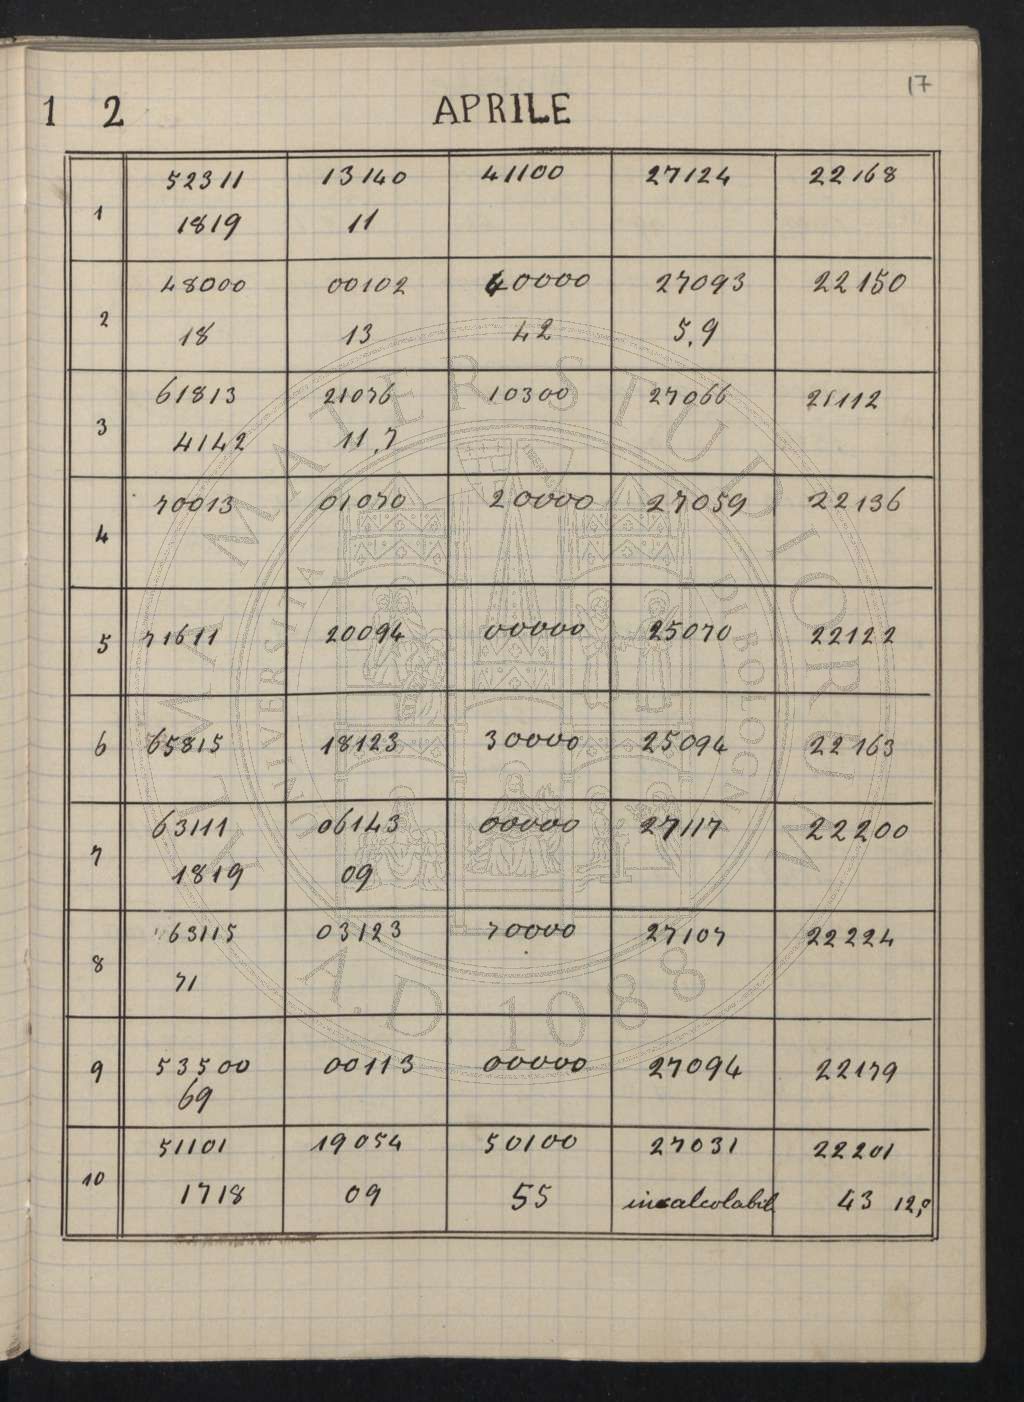 17
1 2 APRILE
1 52311 13140 41100 27124 22168
1819 11
2 48000 00102 40000 27093 22150
18 13 42 5,9
3 61813 21076 10300 27066 21112
4142 11,7
4 70013 01070 20000 27059 22136
5 71611 20094 00000 25070 22122
6 65815 18123 30000 25094 22163
7 63111 06143 00000 27117 22200
1819 09
8 63115 03123 70000 27107 22224
71
9 53500 00113 00000 27094 22179
69
10 51101 19054 50100 27031 22201
1718 09 55 incalcolabil 43 12,0
ALMA MATER STUDIORUM
UNIVERSITA DI BOLOGNA
A.D. 1088